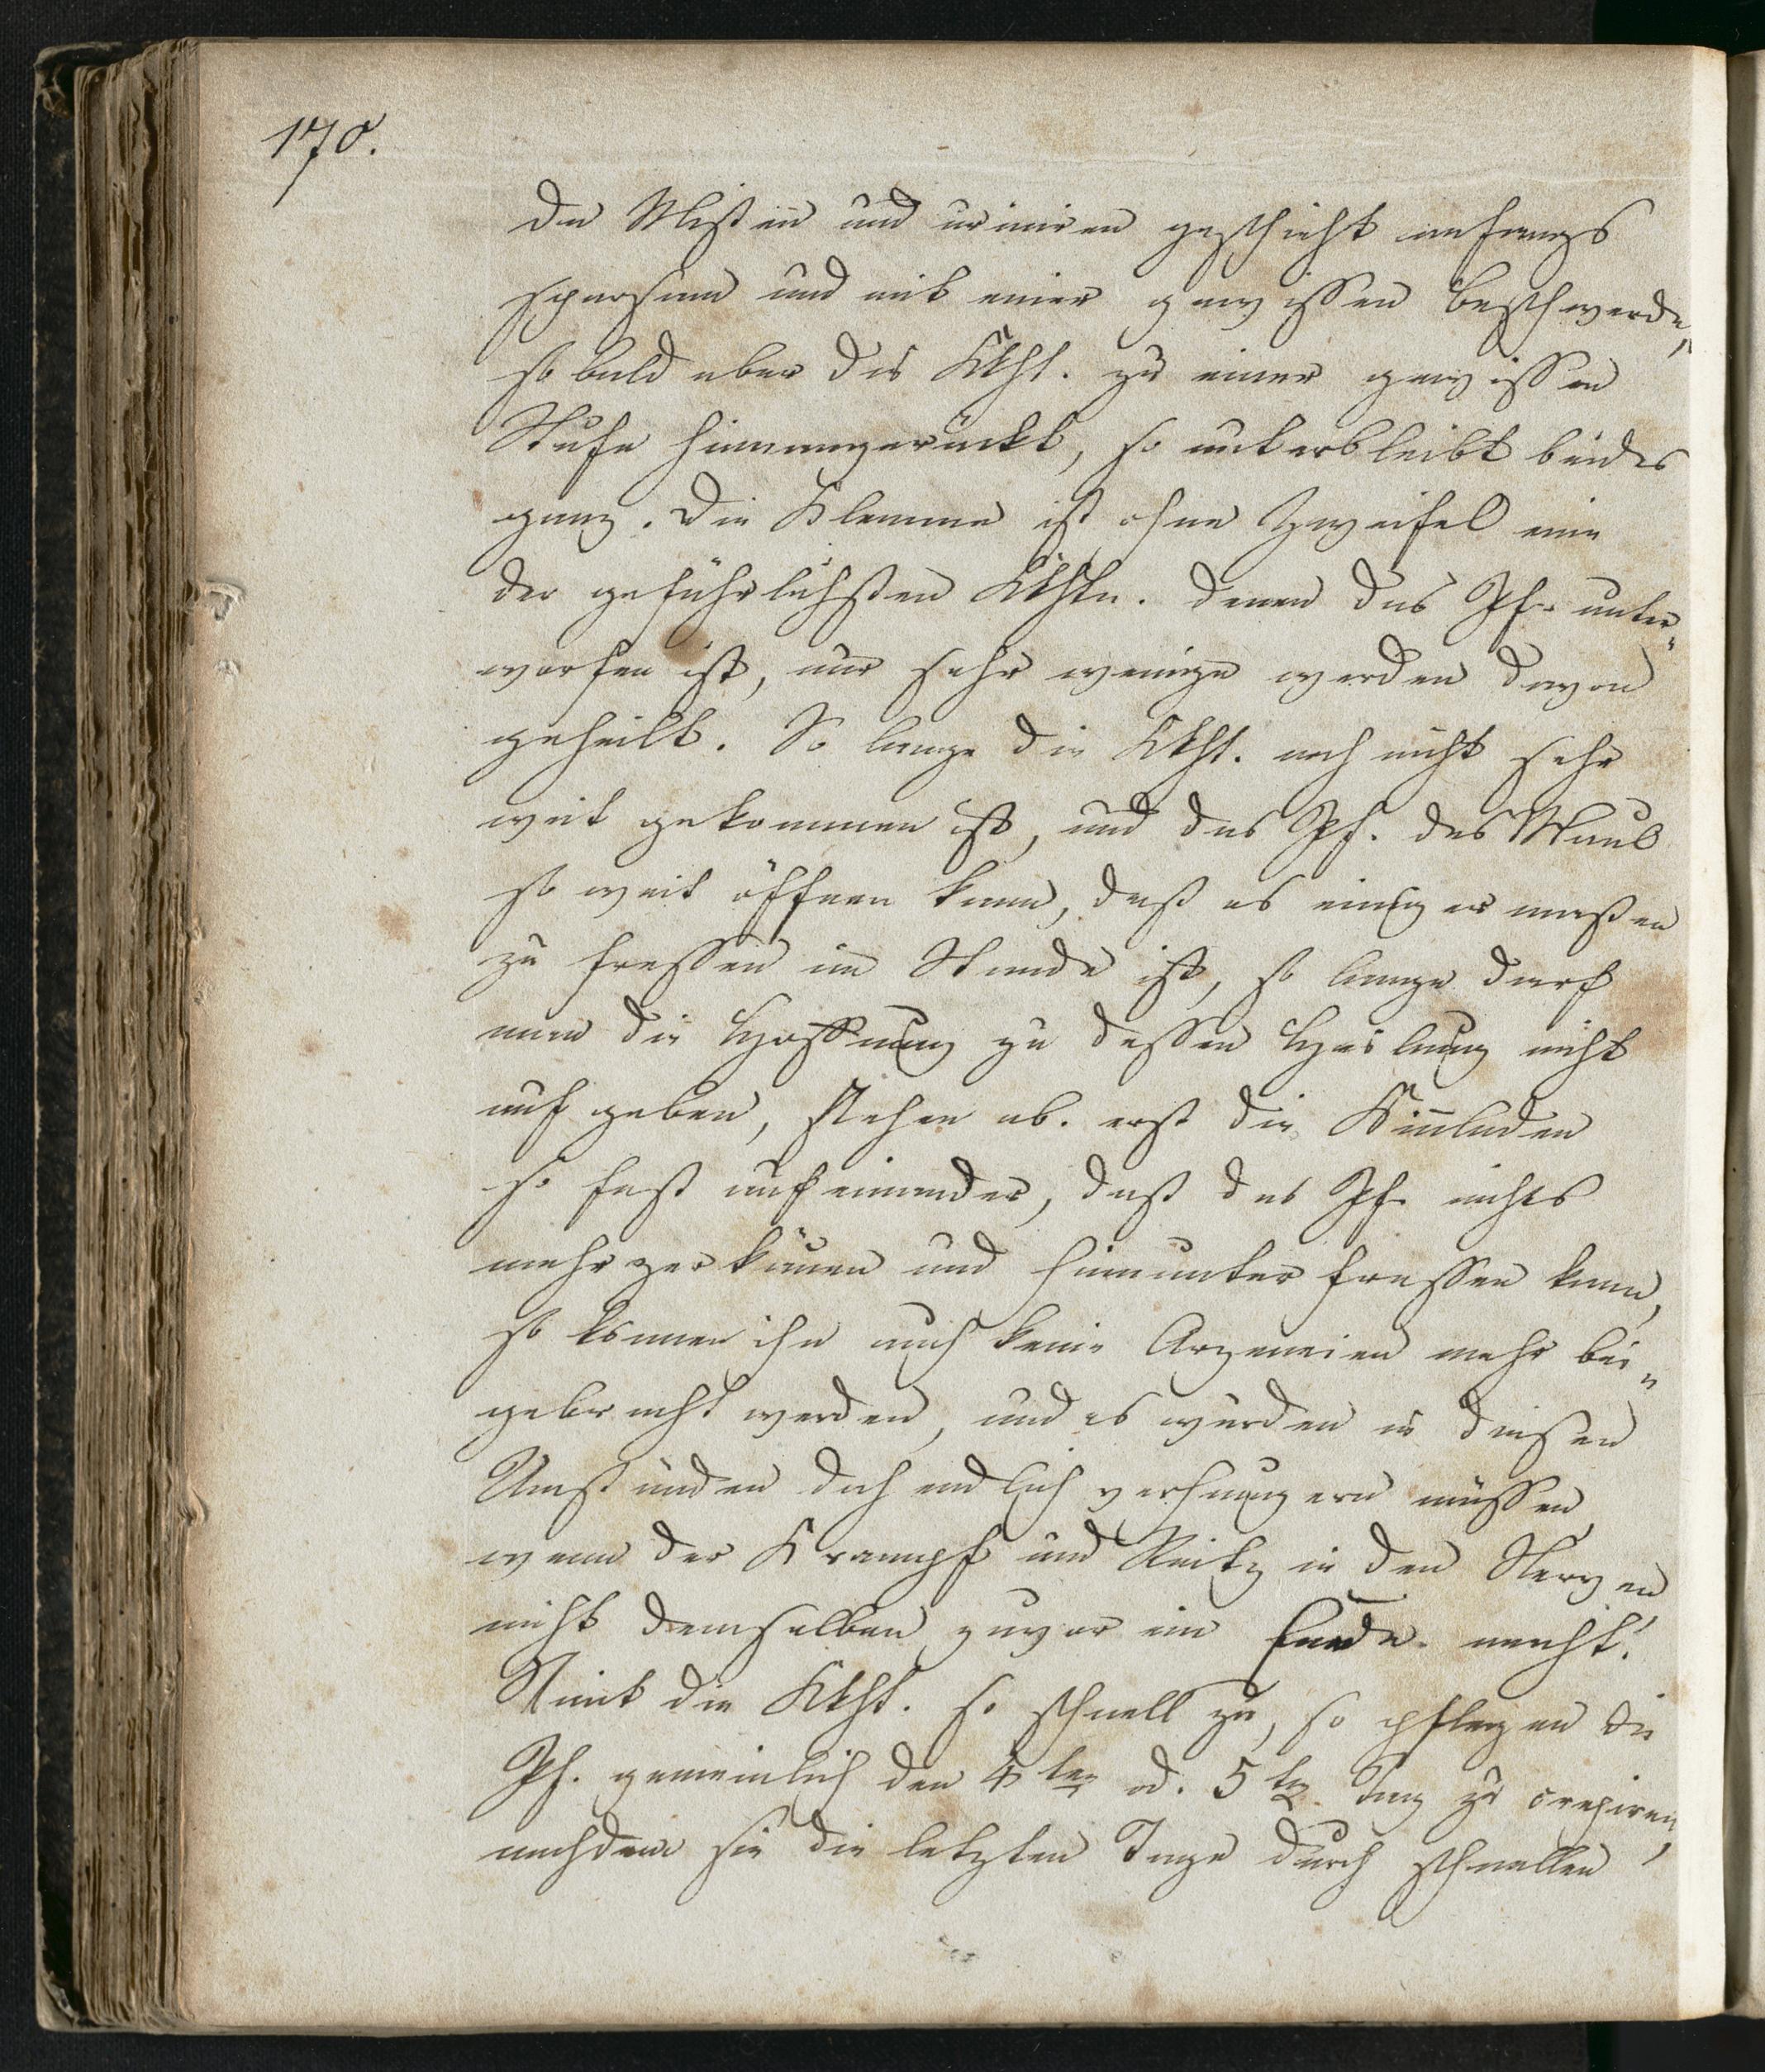 170.
Das Misten und uriniren geschieht anfangs
sparsam und mit einer gewissen beschwerde,
so bald aber die Kkht. zu einer gewissen
Stufe hinangerückt, so unterbleibt beides
ganz. Die Klemme ist ohne Zweifel eine
der gefährlichsten Kkhtn. denen das Pf. unter„
worfen ist, nur sehr wenige werden davon
geheilt. So lange die Kkht. noch nicht sehr
weit gekommen ist, und das Pf. das Maul
so weit öffnen kann, daß es einiger maßen
zu fressen im Stande ist, so lange darf
man die Hoffnung zu dessen Heilung nicht
auf geben, stehen ab. erst die Kin̄laden
so fest aufeinander, daß das Pf. nichts
mehr zer käuen und hinunter fressen kann,
so können ihm auch keine Arzeneien mehr bei„
gebracht werden, und es würden in diesen
Umständen doch endlich verhungern müssen
wenn der Krampf und Reitz in den Nerven
nicht demselben zuvor ein Ende macht.
Nimt die Kkht. so schnell zu, so pflegen die
Pf. gemeinlich den 4ten od. 5ten Tag zu crepiren,
nachdem sie die letzten Tage durch schnellen